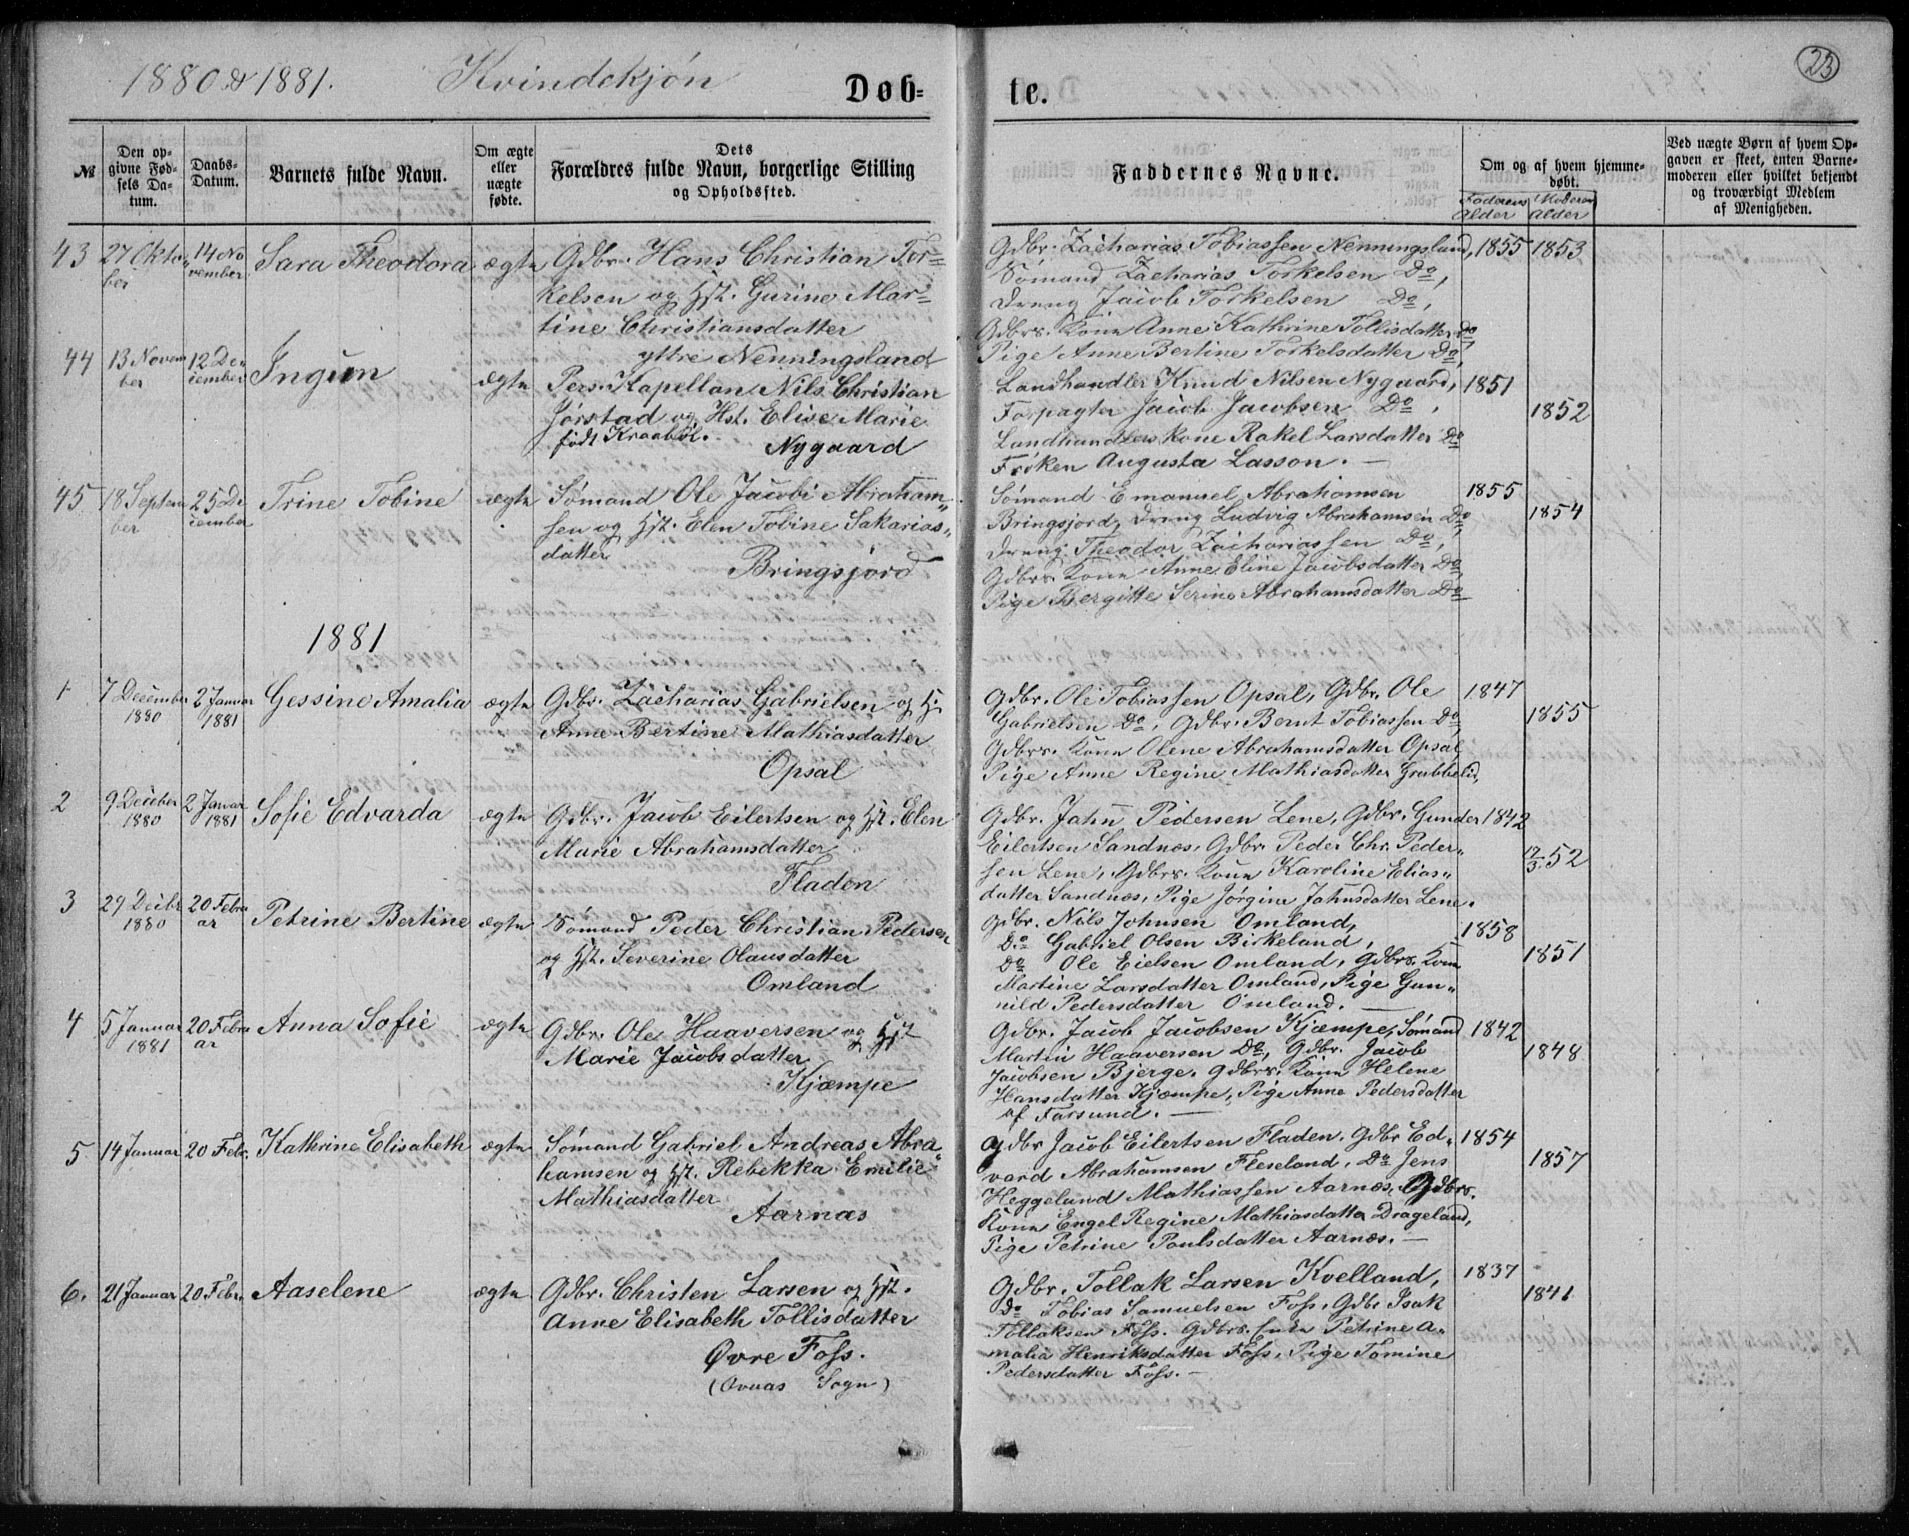 1880 & 1881. Kvindekjøn Døb= te. 23
№
Den opgivne Fødsels Datum.
Daabs-Datum.
Barnets fulde Navn.
Om ægte eller uægte fødte.
Dets Forældres fulde Navn, borgerlige Stilling og Opholdssted.
Faddernes Navne.
Om og af hvem hjemmedøbt.
Faderens Alder
Moderens Alder
Ved uægte Børn af hvem Opgaven er skeet, enten Barnemoderen eller hvilket bekjendt og troværdigt Medlem af Menigheden.
43 27 Oktober 14 November Sara Theodora ægte Gdbr. Hans Christian Tor=
kelsen og Hst. Gurine Mar=
tine Christiansdatter
yttre Nenningsland
Gdbr. Zacharias Tobiassen Nenningsland, 1855 1853
Sømand Zacharias Torkelsen Do,
Dreng Jacob Torkelsen Do,
Gdbrs. Kone Anne Kathrine Tollisdatter Do
Pige Anne Bertine Torkelsdatter Do,
44 13 November 12 December Ingun ægte Pers. Kapellan Nils Christian
Jørstad og Hst. Elise Marie
født Kraabøl.
Nygaard
Landhandler Knud Nilsen Nygaard, 1851
Forpagter Jacob Jacobsen Do, 1852
Landhandlers kone Rakel Larsdatter Do
Frøken Augusta Lasson. —
45 18 September 25 December Trine Tobine ægte Sømand Ole Jacobi Abraham„
sen og Hst. Elen Tobine Sakarias„
datter
Bringsjord
Sømand Emanuel Abrahamsen 1855
Bringsjord, Dreng Ludvig Abrahamsen Do, 1854
Dreng Theodor Zachariassen Do,
Gdbrs. Kone Anne Eline Jacobsdatter Do
Pige Bergitte Serine Abrahamsdatter Do
1881
1 7 December 1880 2 Januar 1881 Gessine Amalia ægte Gdbr. Zacharias Gabrielsen og H.
Anne Bertine Mathiasdatter
Opsal
Gdbr. Ole Tobiassen Opsal, Gdbr. Ole 1847
Gabrielsen Do, Gdbr. Bernt Tobiassen Do, 1855
Gdbrs. Kone Olene Abrahamsdatter Opsal
Pige Anne Regine Mathiasdatter Grubbelid,
2 9 December 1880 2 Januar 1881 Sofie Edvarda ægte Gdbr. Jacob Eilertsen og Hst. Elen
Marie Abrahamsdatter
Fladen
Gdbr. Jahn Pedersen Lene, Gdbr. Gunder 1842
Eilertsen Sandnæs, Gdbr. Peder Chr. Peder„ 12/3 52
sen Lene, Gdbrs. Kone Karoline Elias„
datter Sandnæs, Pige Jørgine Jahnsdatter Lene.
3 29 Decbr 1880 20 Februar Petrine Bertine ægte Sømand Peder Christian Pedersen
og Hst. Severine Olausdatter
Omland
Gdbr. Nils Johnsen Omland, 1858
Do Gabriel Olsen Birkeland, 1851
Do Ole Eielsen Omland, Gdbrs. Kone
Martine Larsdatter Omland, Pige Gun„
nild Pedersdatter Omland. —
4 5 Januar 1881 20 Februar Anna Sofie ægte Gdbr. Ole Haaversen og Hst
Marie Jacobsdatter
Kjæmpe
Gdbr. Jacob Jacobsen Kjæmpe, Sømand 1842
Martin Haaversen Do, Gdbr. Jacob 1848
Jacobsen Bjerge, Gdbrs. Kone Helene
Hansdatter Kjæmpe, Pige Anne Pedersdatter
af Farsund. —
5 14 Januar 20 Febr. Kathrine Elisabeth ægte Sømand Gabriel Andreas Abra„
hamsen og Hst. Rebekka Emilie
Mathiasdatter
Aarnæs
Gdbr Jacob Eilertsen Fladen, Gdbr Ed„ 1854
vard Abrahamsen Fleseland, Do Jens 1857
Heggelund Mathiassen Aarnæs, Gdbrs.
Kone Engel Regine Mathiasdatter Drageland,
Pige Petrine Paulsdatter Aarnæs. —
6. 21 Januar 20 Febr. Aaselene ægte Gdbr. Christen Larsen og Hst.
Anne Elisabeth Tollisdatter
Øvre Foss.
(Qvaas Sogn)
Gdbr. Tollak Larsen Kvelland, 1837
Do Tobias Samuelsen Foss, Gdbr Isak 1841
Tollaksen Foss. Gdbrs. Enke Petrine A„
malia Henriksdatter Foss, Pige Tomine
Pedersdatter Foss. —